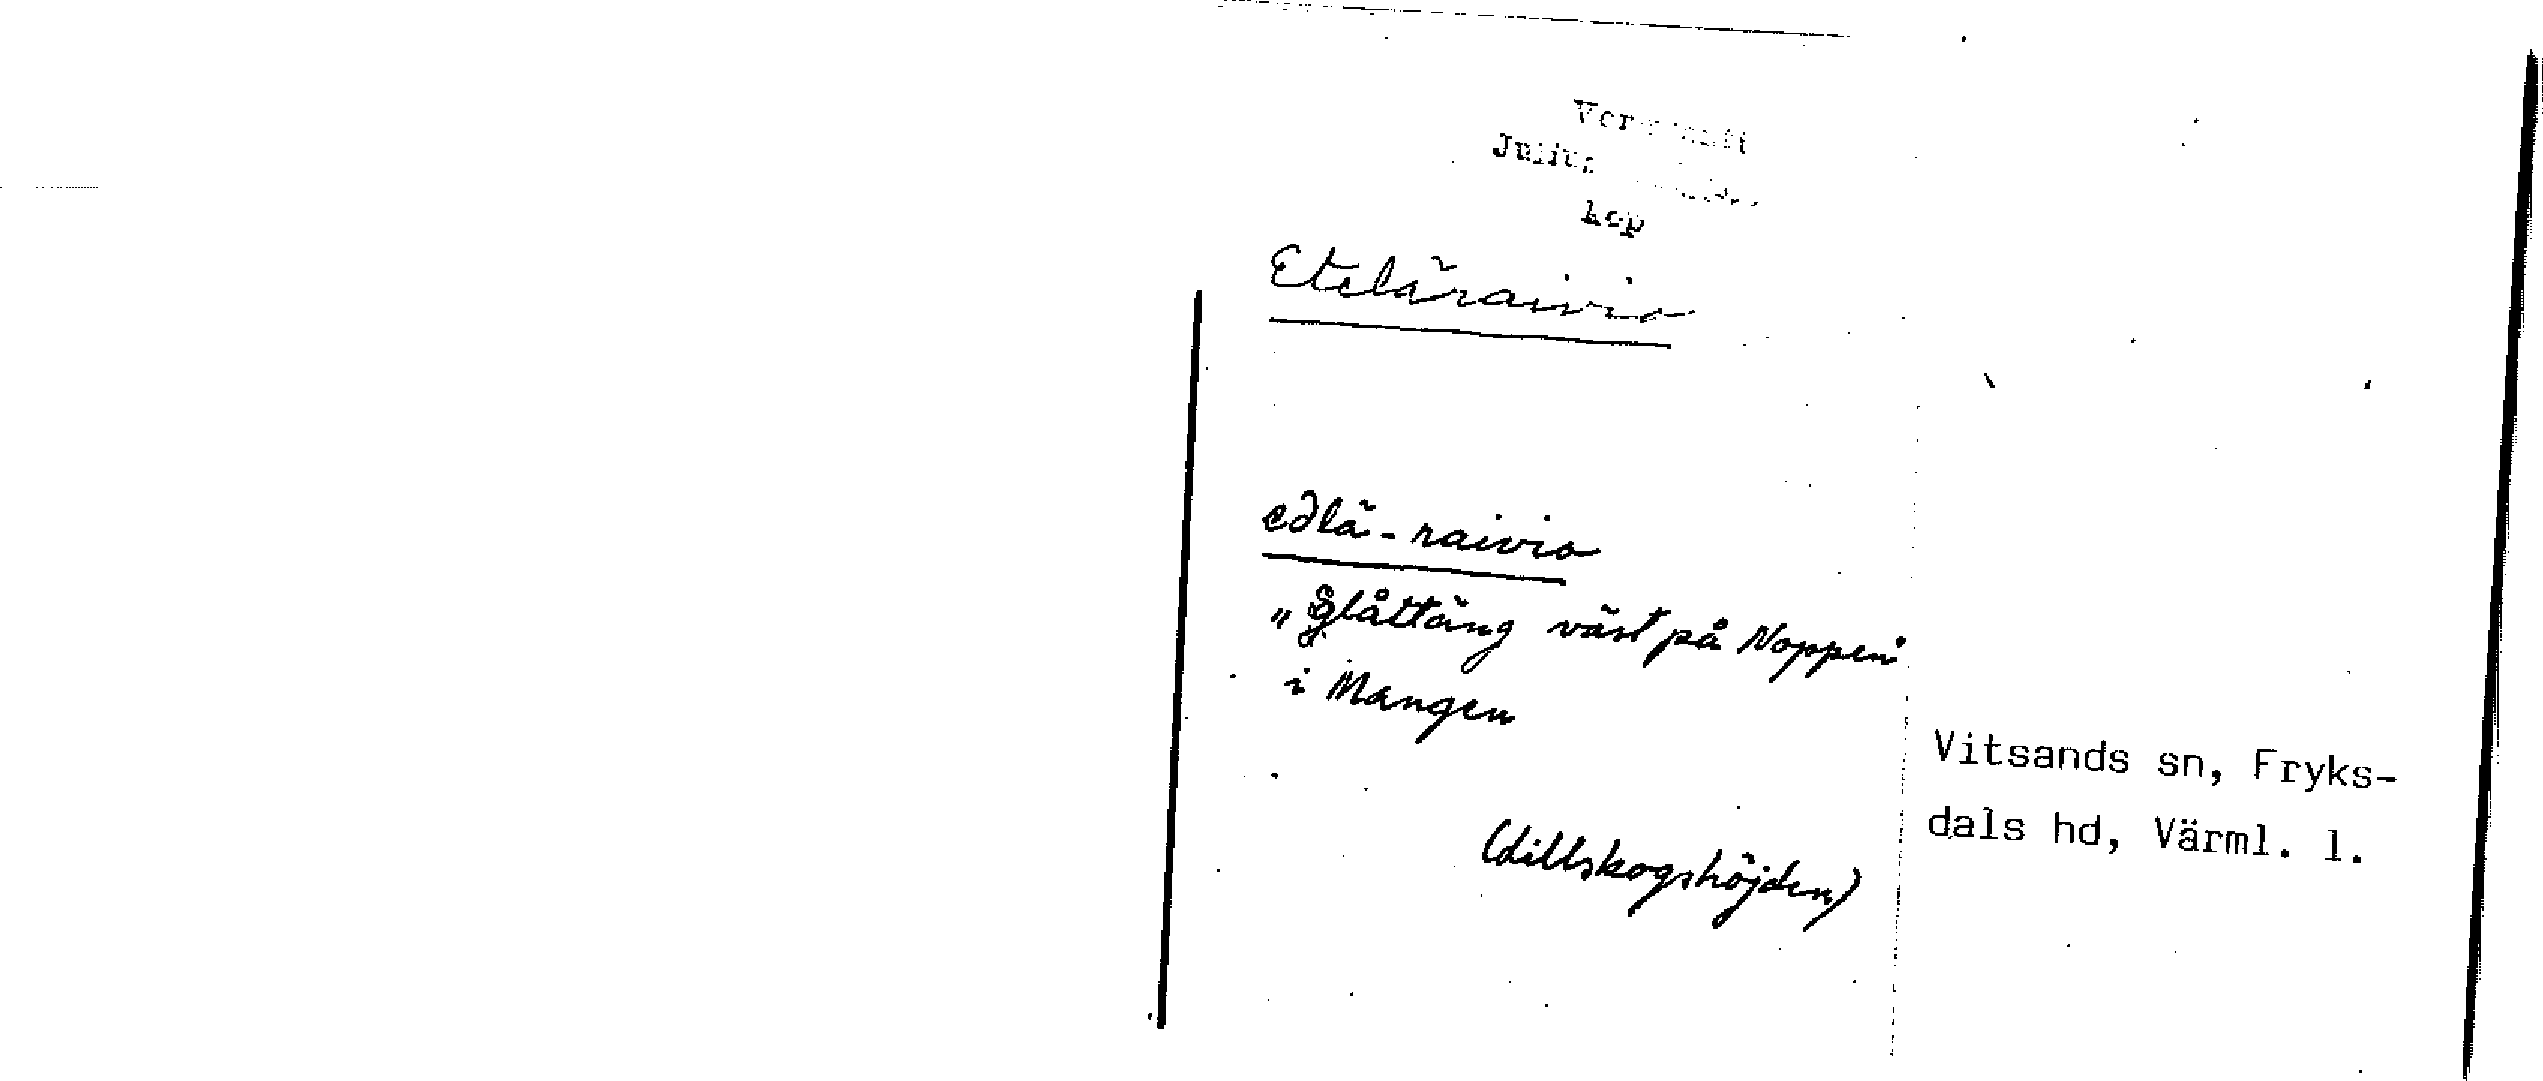 Julius
kop
Eteläraivio
edlä-raivio
"Slåttäng väst på Noppen"
i Mangen
(Lillskogshöjden)
Vitsands sn, Fryks-
dals hd, Värml. l.